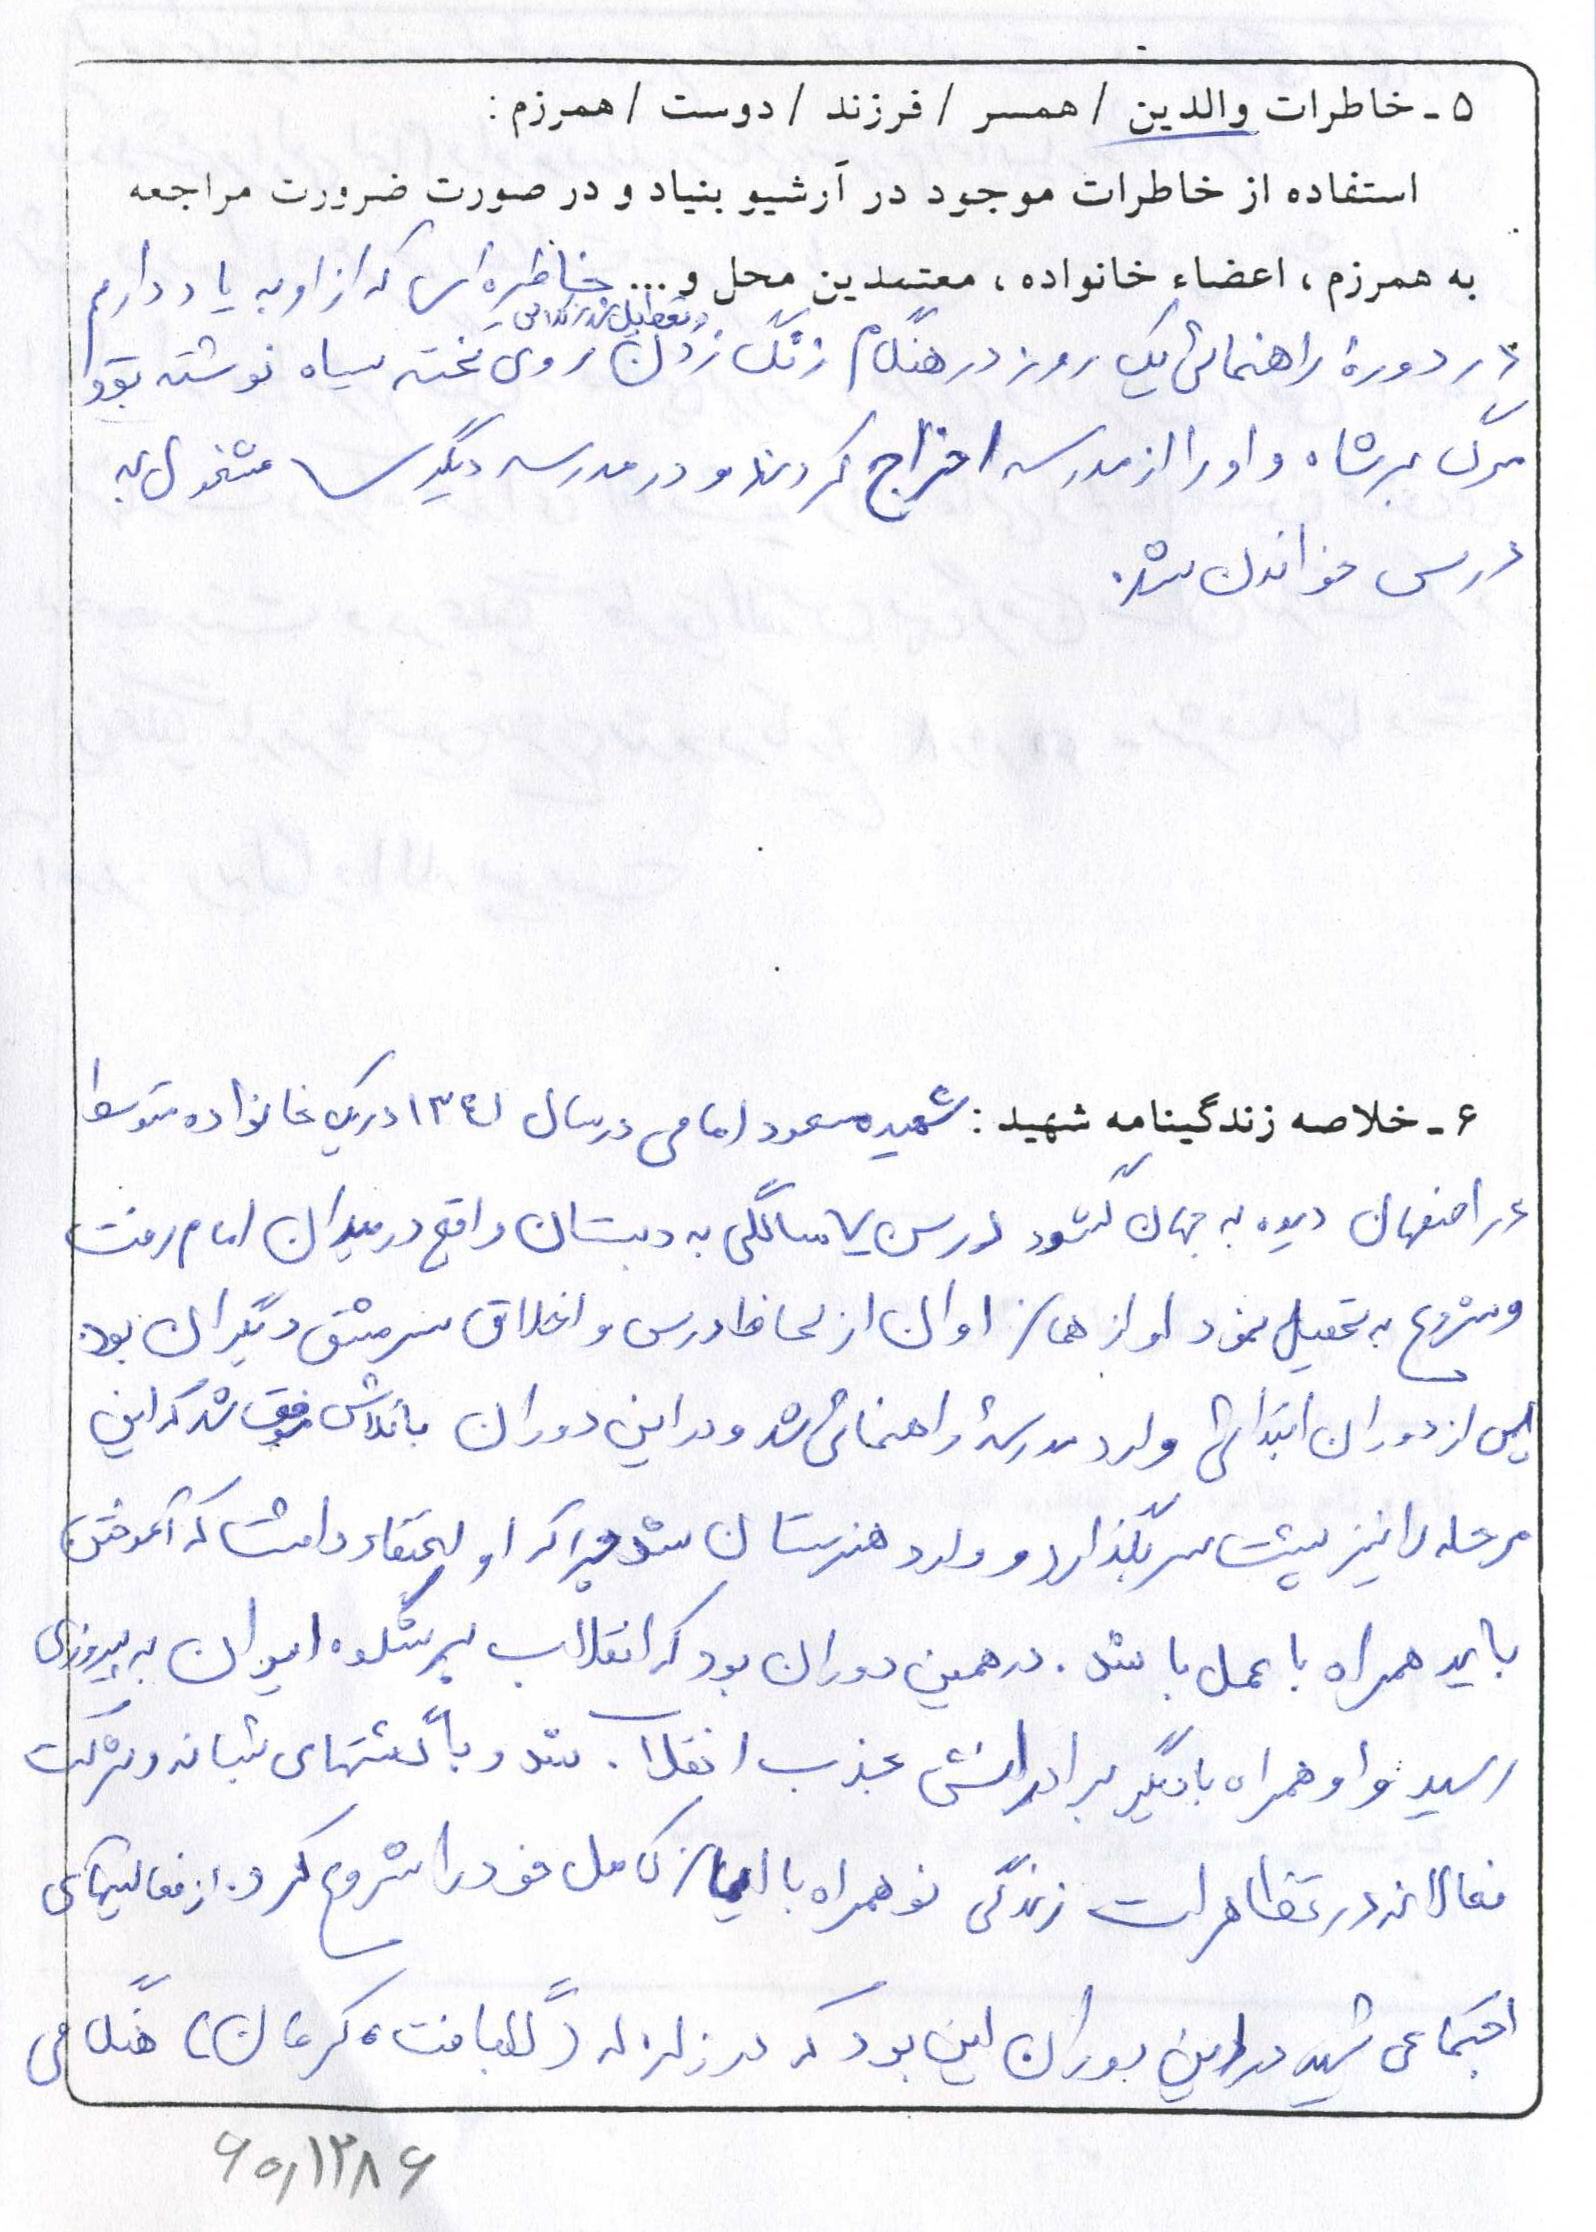 ۵ ـ خاطرات والدین / همسر / فرزند / دوست / همرزم :
استفاده از خاطرات موجود در آرشیو بنیاد و در صورت ضرورت مراجعه
به همرزم ، اعضاء خانواده ، معتمدین محل و ... خاطره‌ای که از او به یاد دارم
و تعطیل شدن کلاس
در دورهٔ راهنمائی یک روز در هنگام زنگ زدن روی تخته سیاه نوشته بود
مرگ بر شاه و او را از مدرسه اخراج کردند و در مدرسه دیگر مشغول به
درس خواندن شد.
۶ ـ خلاصه زندگینامه شهید : شهید مسعود امامی در سال ۱۳۴۱ در یک خانواده متوسط
در اصفهان دیده به جهان گشود در سن ۷ سالگی به دبستان واقع در میدان امام رفت
و شروع به تحصیل نمود او از همان اوان از لحاظ درس و اخلاق سرمشق دیگران بود.
پس از دوران ابتدائی وارد مدرسهٔ راهنمائی شد و در این دوران با تلاش موفق شد که این
مرحله را نیز پشت سر بگذارد و وارد هنرستان شد چرا که او اعتقاد داشت که آموختن
باید همراه با عمل باشد . در همین دوران بود که انقلاب پرشکوه ایران به پیروزی
رسید و او همراه با دیگر برادرانش جذب انقلاب شد و با گشتهای شبانه و شرکت
فعالانه در تظاهرات زندگی نو همراه با ایمان کامل خود را شروع کرد . از فعالیتهای
اجتماعی شهید در این دوران این بود که در زلزله ( گلبافت کرمان ) هنگامی
۶۰٫۱۲۸۶